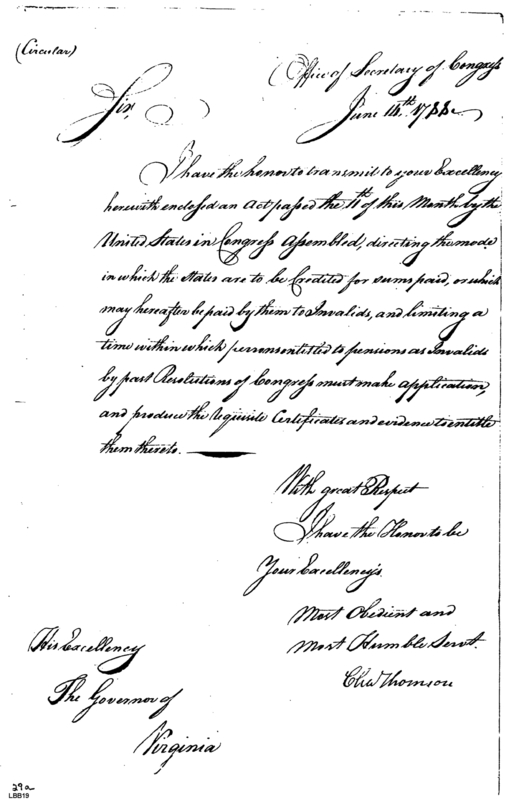 (Circular)
Office of Secretary of Congress
Sir,
June 14th. 1788
I have the honor to transmit to your Excellency
herewith enclosed an Act passed the 11th of this Month by the
United States in Congress Assembled, directing the mode
in which the States are to be Credited for sums paid, or which
may hereafter be paid by them to Invalids, and limiting a
time within which persons entitled to pensions as Invalids
by past Resolutions of Congress must make application,
and produce the requisite Certificates and evidence to entitle
them thereto.
With great Respect
I have the Honor to be
Your Excellency's
Most Obedient and
Most Humble Servt.
Chas Thomson
His Excellency
The Governor of
Virginia
29a
LBB19